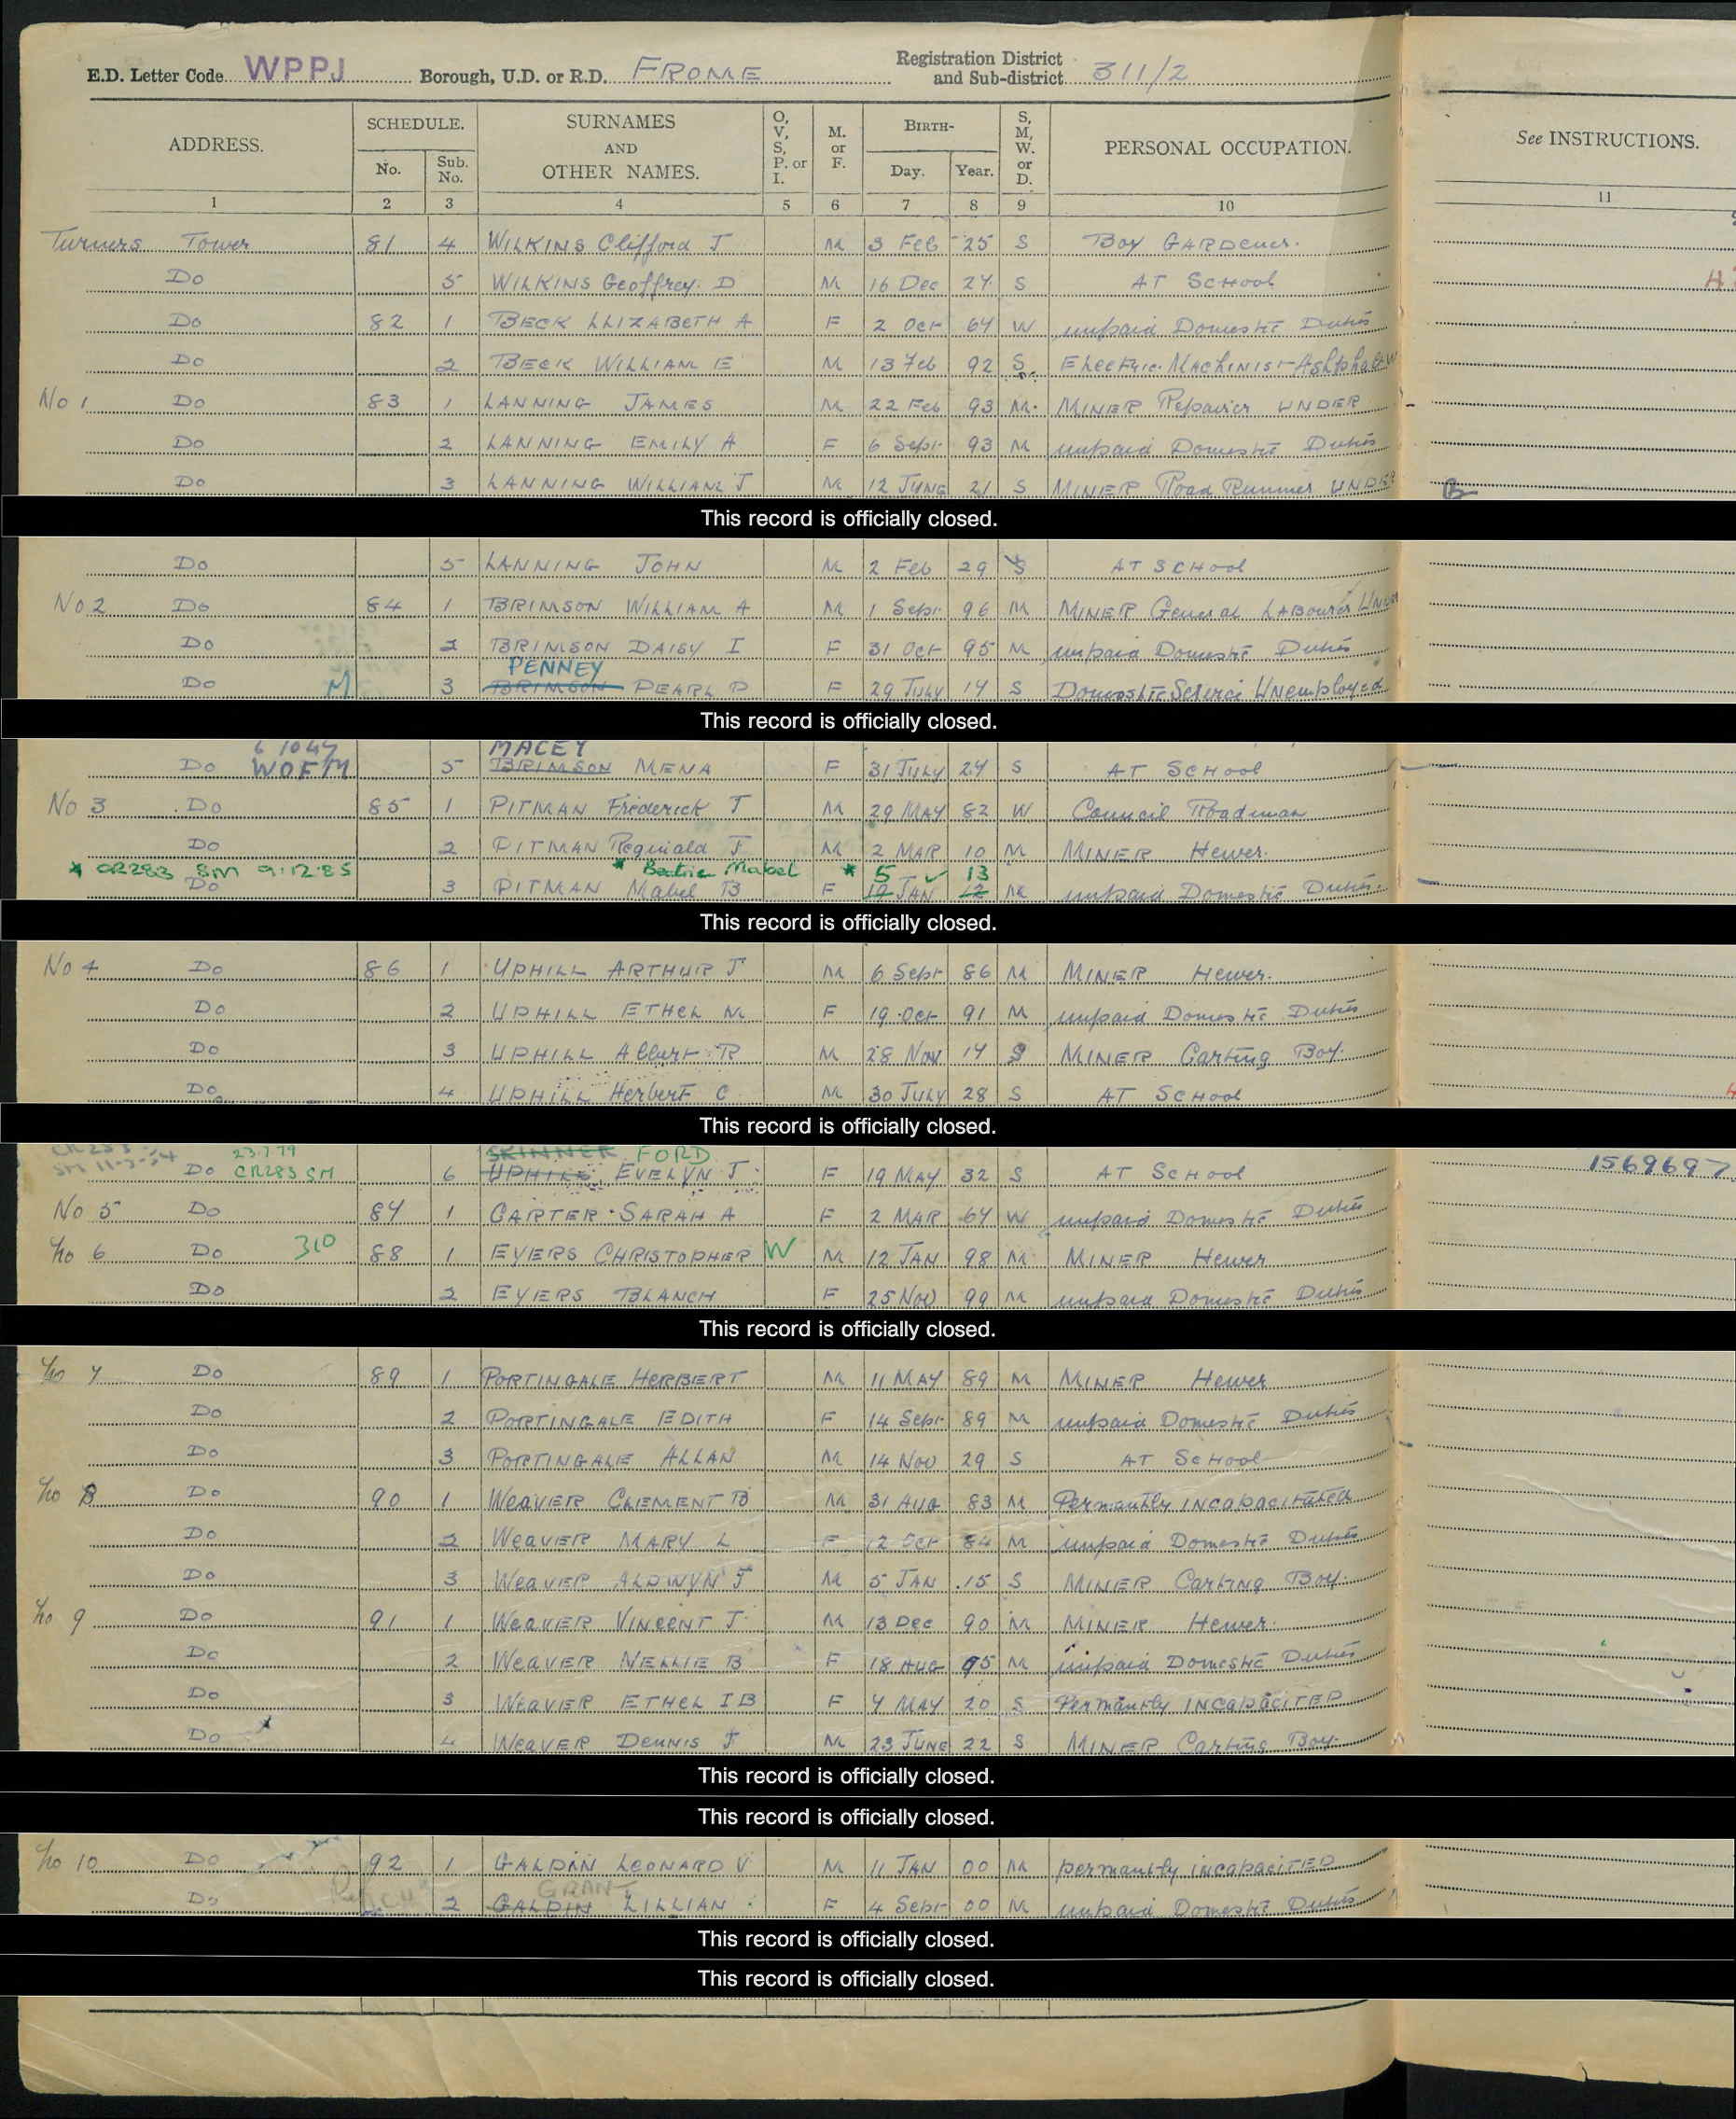 E.D. Letter Code WPPJ Borough, U.D. or R.D. FROME Registration District and Sub-district 311/2
ADDRESS. SCHEDULE. No. Sub. No. SURNAMES AND OTHER NAMES. O, V, S, P. or I. M. or F. BIRTH- Day. Year. S, M, W. or D. PERSONAL OCCUPATION. See INSTRUCTIONS.
1 2 3 4 5 6 7 8 9 10 11
Turners Tower 81 4 WILKINS Clifford J M 3 Feb 25 S Boy GARDener.
Do 5 WILKINS Geoffrey D M 16 Dec 27 S AT School
Do 82 1 BECK ELIZABETH A F 2 Oct 64 W unpaid Domestic Duties
Do 2 BECK WILLIAM E M 13 Feb 92 S Electric Machinist Ashphalt W
No 1 Do 83 1 LANNING JAMES M 22 Feb 93 M. MINER Repairer UNDER
Do 2 LANNING EMILY A F 6 Sept 93 M unpaid Domestic Duties
Do 3 LANNING WILLIAM J M 12 JUNE 21 S MINER Road Runner UNDER
This record is officially closed.
Do 5 LANNING JOHN M 2 Feb 29 S AT SCHool
No 2 Do 84 1 BRIMSON WILLIAM A M 1 Sept 96 M MINER General LABourer UNDER
Do 2 BRIMSON DAISY I F 31 Oct 95 M unpaid Domestic Duties
PENNEY
Do M 3 BRIMSON PEARL P F 29 July 17 S Domestic Service UNemployed
This record is officially closed.
6 10 47 MACEY
Do WOFM 5 BRIMSON MENA F 31 July 27 S AT School
No 3 Do 85 1 PITMAN Frederick J M 29 MAY 82 W Council Roadman
Do 2 PITMAN Reginald J M 2 MAR 10 M MINER Hewer.
* CR283 SM 9.12.85 * Beatrice Mabel * 5 ✓ 13
Do 3 PITMAN Mabel B F 17 JAN 12 M unpaid Domestic Duties.
This record is officially closed.
No 4 Do 86 1 UPHILL ARTHUR J M 6 Sept 86 M MINER Hewer.
Do 2 UPHILL ETHEL M F 19 Oct 91 M unpaid Domestic Duties
Do 3 UPHILL Albert R M 28 Nov 17 S MINER Carting Boy.
Do 4 UPHILL Herbert C M 30 July 28 S AT School
This record is officially closed.
23.7.79 SKINNER FORD
SM 11-3-54 Do CR283 SM 6 UPHILL EVELYN J. F 19 MAY 32 S AT School 1569697
No 5 Do 87 1 CARTER SARAH A F 2 MAR 67 W unpaid Domestic Duties
No 6 Do 310 88 1 EYERS CHRISTOPHER W M 12 JAN 98 M MINER Hewer
Do 2 EYERS BLANCH F 25 Nov 99 M unpaid Domestic Duties
This record is officially closed.
No 7 Do 89 1 PORTINGALE HERBERT M 11 MAY 89 M MINER Hewer
Do 2 PORTINGALE EDITH F 14 Sept 89 M unpaid Domestic Duties
Do 3 PORTINGALE ALLAN M 14 Nov 29 S AT School
No 8 Do 90 1 WeAVER CLEMENT B M 31 AUG 83 M Permantly INCAPACITATED
Do 2 WeAVER MARY L F 12 Oct 84 M unpaid Domestic Duties
Do 3 WeAVER ALDWYN J M 5 JAN 15 S MINER Carting Boy.
No 9 Do 91 1 WeAVER VINCENT J M 13 Dec 90 M MINER Hewer.
Do 2 WeAVER NELLIE B F 18 AUG 95 M unpaid Domestic Duties
Do 3 WeAVER ETHEL I B F 7 MAY 20 S Permantly INCAPACITED
Do 4 WeAVER Dennis J M 23 JUNE 22 S MINER Carting Boy.
This record is officially closed.
This record is officially closed.
No 10 Do 92 1 GALPIN LEONARD V M 11 JAN 00 M permantly incapacited
GRAN
Do 2 GALPIN LILLIAN F 4 Sept 00 M unpaid Domestic Duties
This record is officially closed.
This record is officially closed.